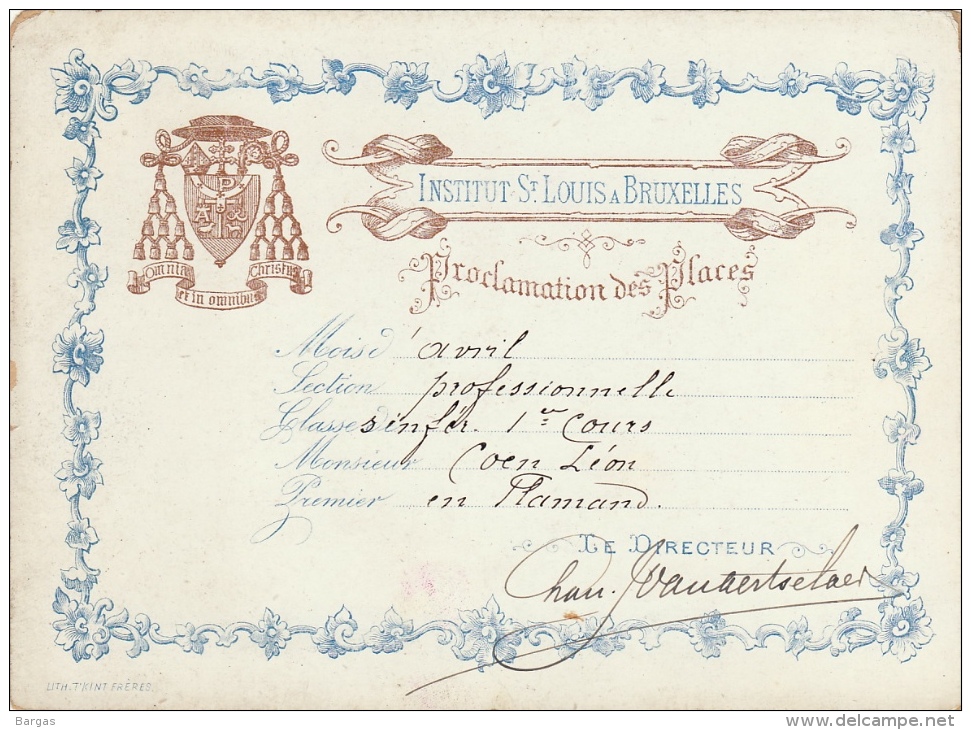 INSTITUT ST. LOUIS A BRUXELLES
Proclamation des Places
Omnia
et in omnibus
Christus
Mois d'avril
Section professionnelle
Classes infér. 1er Cours
Monsieur Coen Léon
Premier en Flamand.
LE DIRECTEUR
Chan.
LITH. T'KINT FRÈRES.
Bargas
delcampe.net